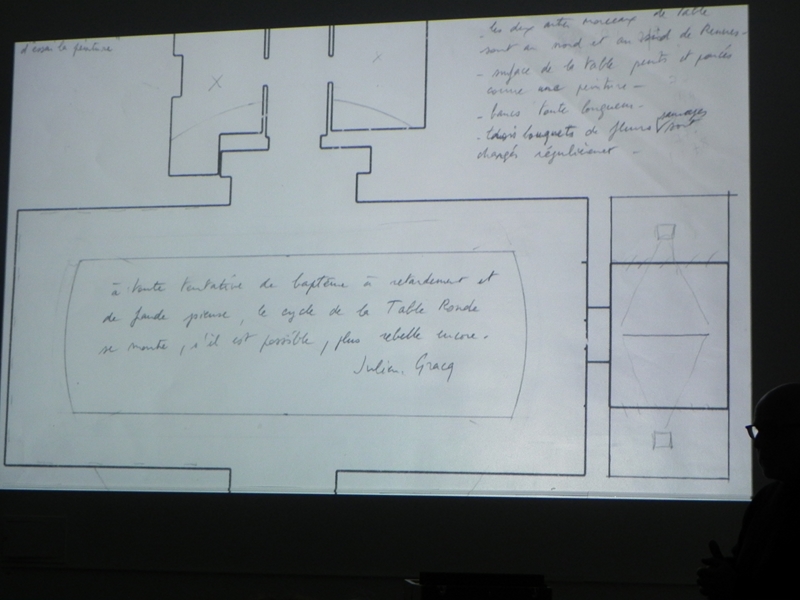 d'essai la peinture
- les deux autres morceaux de table
sont au nord et au sud de Rennes -
- surface de la table peints et poncés
comme une peinture -
- bancs toute longueur -
bouquets de fleurs sauvages
changés régulièrement -
à toute tentative de baptême à retardement et
de fraude pieuse, le cycle de la Table Ronde
se montre, s'il est possible, plus rebelle encore.
Julien Gracq